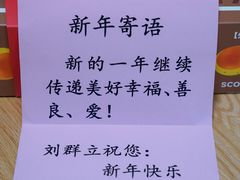 新年寄语
新的一年继续
传递美好幸福、善
良、爱！
刘群立祝您：
新年快乐
SCO